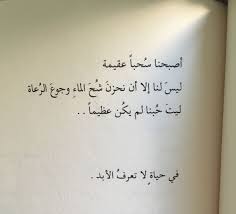 أصبحنا سُحباً عقيمة
ليسَ لنا إلا أن نحزنَ شُحَ الماءِ وجوعَ الرُعاة
ليتَ حُبنا لم يكُن عظيماً . .
في حياةٍ لا تعرفُ الأبد .